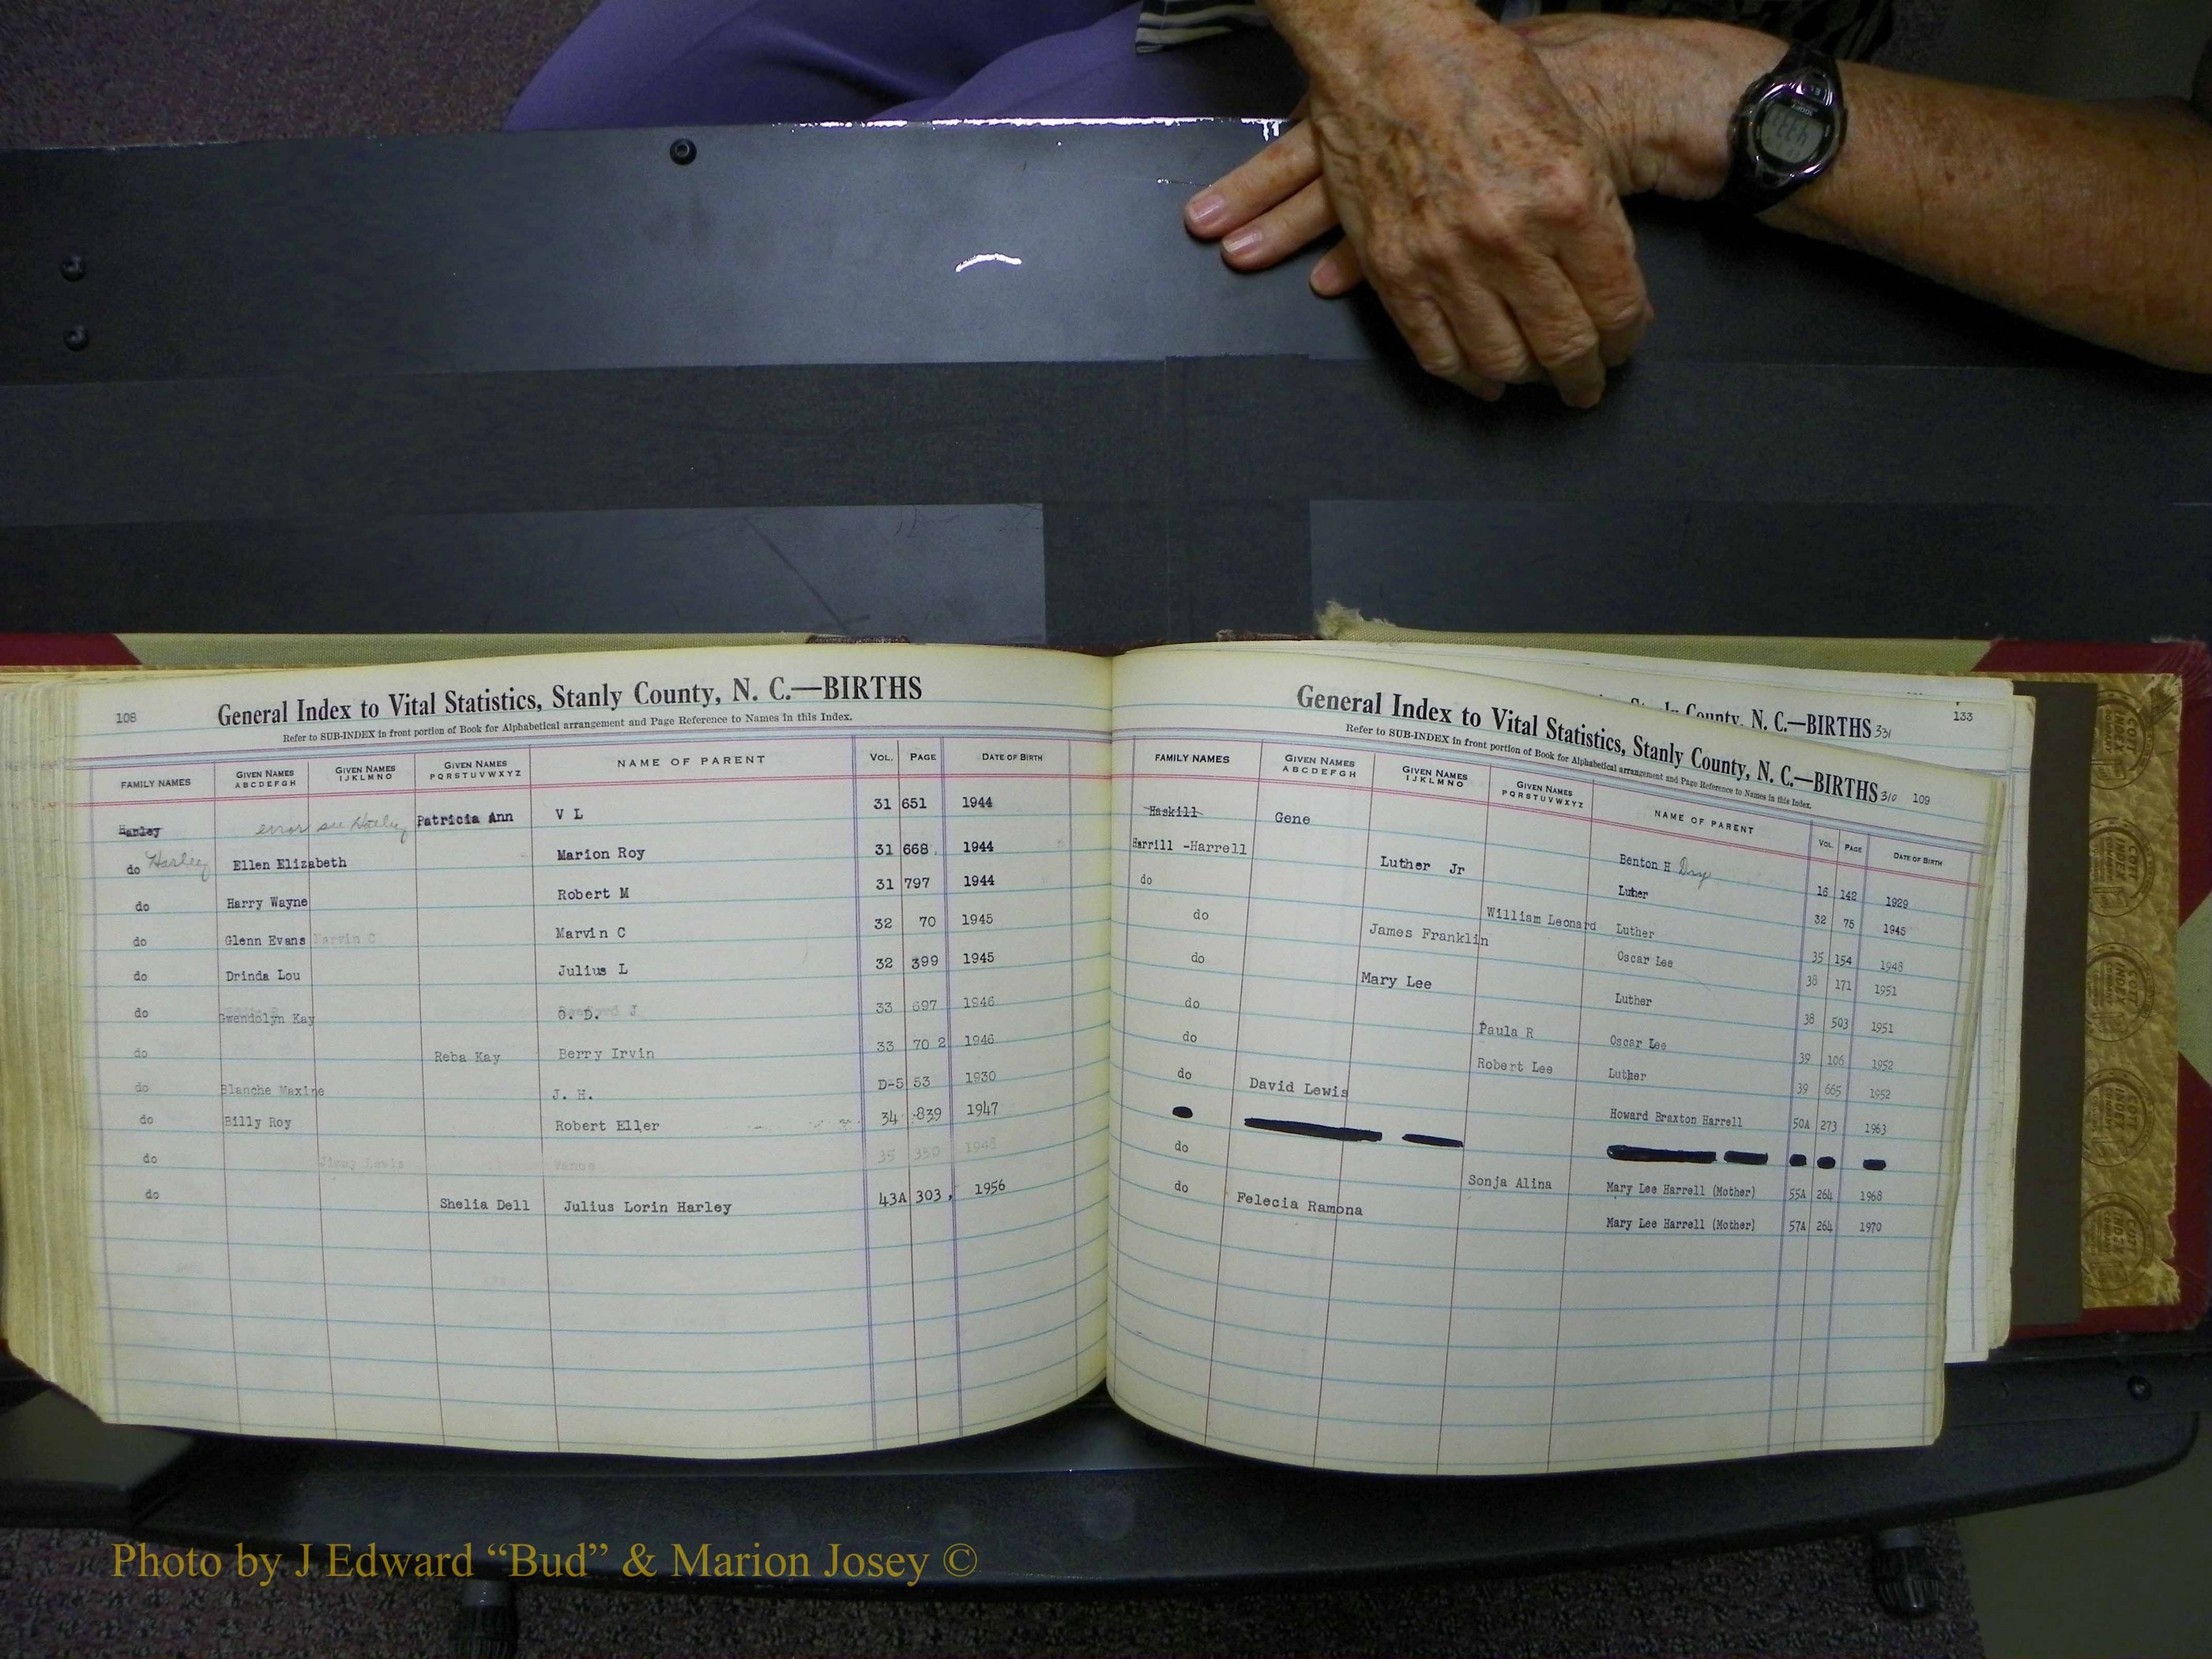 108
General Index to Vital Statistics, Stanly County, N. C.—BIRTHS
Refer to SUB-INDEX in front portion of Book for Alphabetical arrangement and Page Reference to Names in this Index.
FAMILY NAMES GIVEN NAMES ABCDEFGH GIVEN NAMES IJKLMNO GIVEN NAMES PQRSTUVWXYZ NAME OF PARENT VOL. PAGE DATE OF BIRTH
Harley error see Hatley Patricia Ann V L 31 651 1944
do Harley Ellen Elizabeth Marion Roy 31 668 1944
do Harry Wayne Robert M 31 797 1944
do Glenn Evans Marvin C Marvin C 32 70 1945
do Drinda Lou Julius L 32 399 1945
do Gwendolyn Kay O. D. 33 697 1946
do Reba Kay Berry Irvin 33 702 1946
do Blanche Maxine J. H. D-5 53 1930
do Billy Roy Robert Eller 34 839 1947
do Jimmy Lewis Vance 35 350 1948
do Shelia Dell Julius Lorin Harley 43A 303, 1956
County, N. C.—BIRTHS 331 133
General Index to Vital Statistics, Stanly County, N. C.—BIRTHS 310 109
Refer to SUB-INDEX in front portion of Book for Alphabetical arrangement and Page Reference to Names in this Index.
FAMILY NAMES GIVEN NAMES ABCDEFGH GIVEN NAMES IJKLMNO GIVEN NAMES PQRSTUVWXYZ NAME OF PARENT VOL. PAGE DATE OF BIRTH
Haskill Gene Benton H Dry 16 142 1929
Harrill -Harrell Luther Jr Luther 32 75 1945
do William Leonard Luther 35 154 1948
do James Franklin Oscar Lee 38 171 1951
do Mary Lee Luther 38 503 1951
do Paula R Oscar Lee 39 106 1952
do Robert Lee Luther 39 665 1952
do David Lewis Howard Braxton Harrell 50A 273 1963
do Sonja Alina Mary Lee Harrell (Mother) 55A 264 1968
do Felecia Ramona Mary Lee Harrell (Mother) 57A 264 1970
Photo by J Edward “Bud” & Marion Josey ©